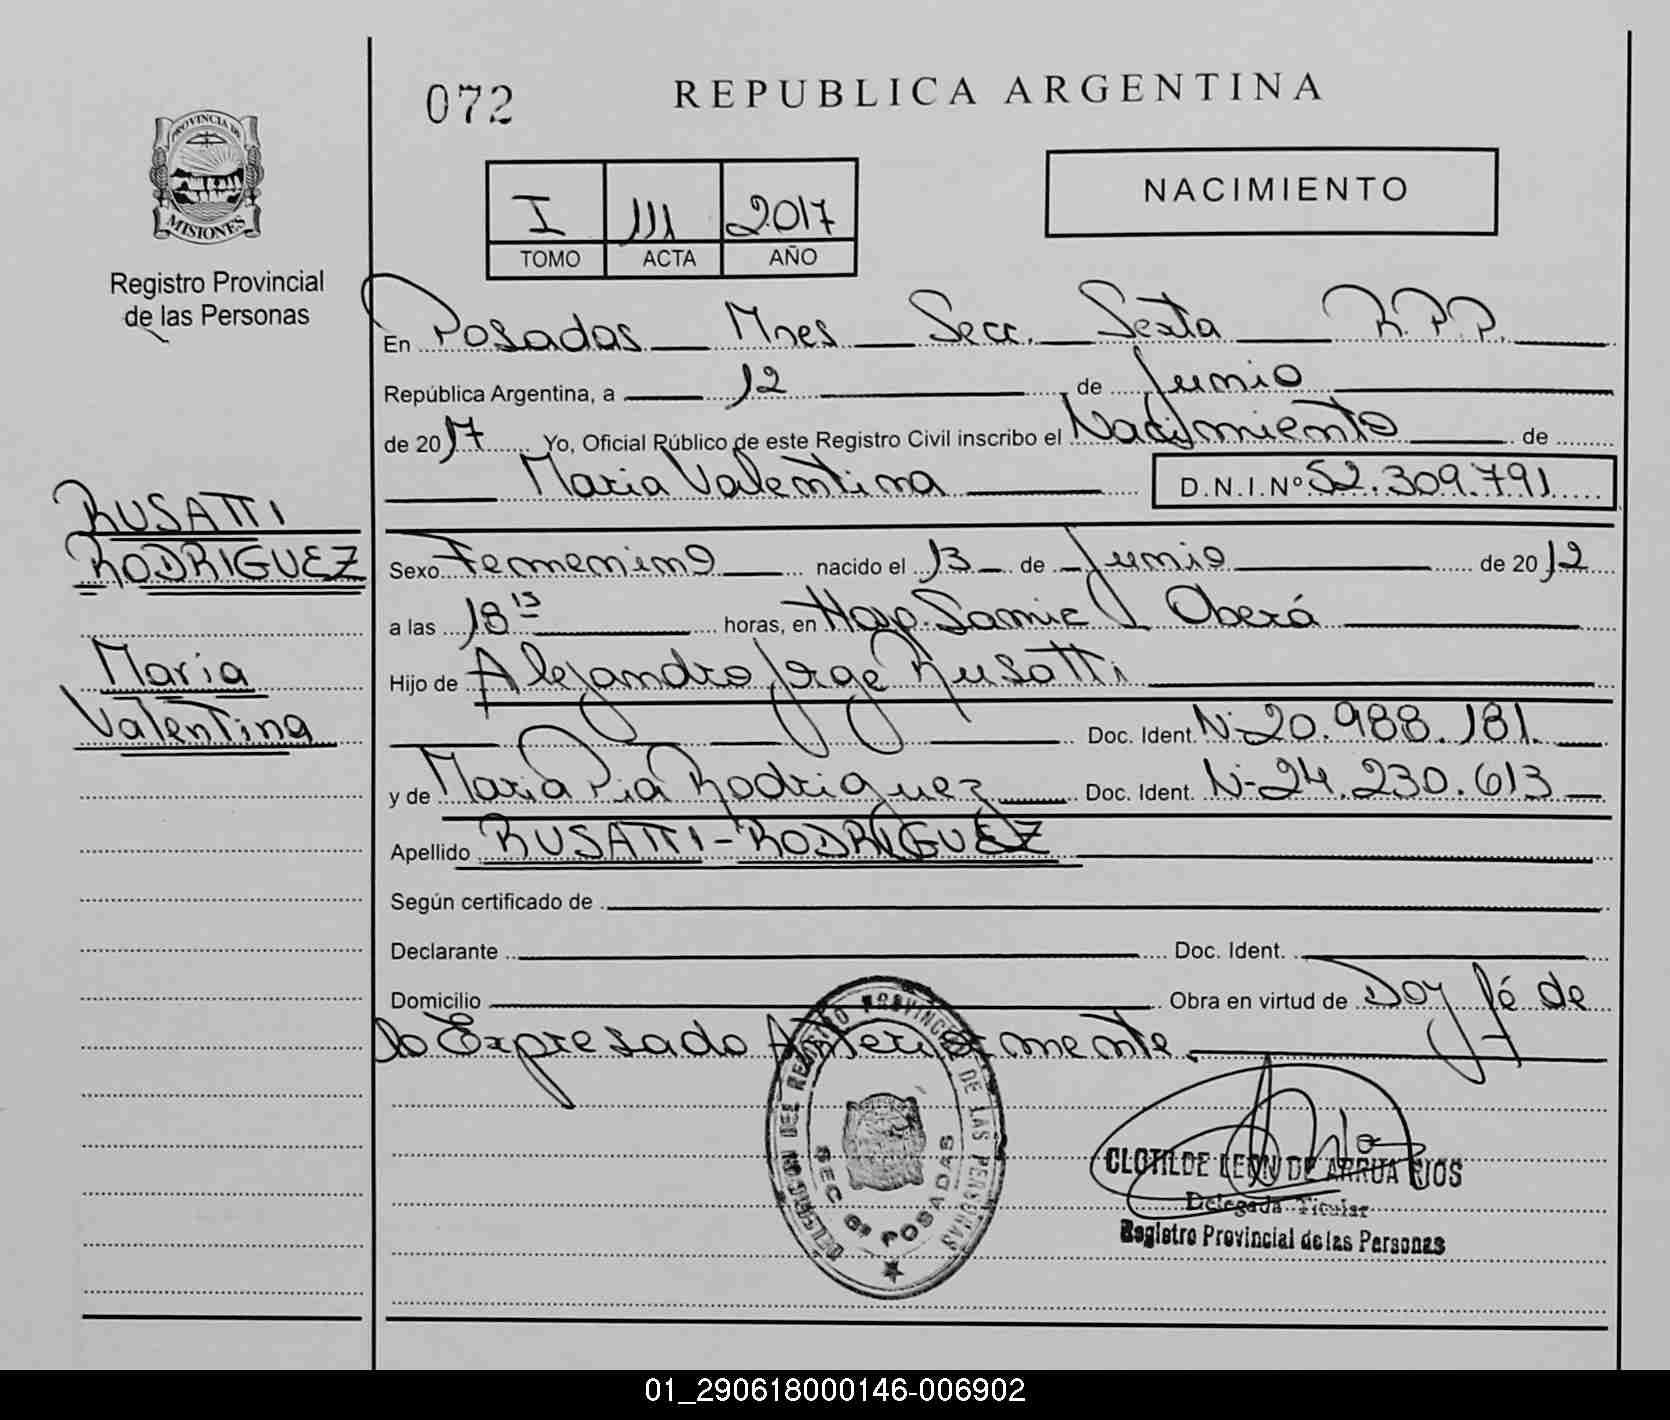 072
REPUBLICA ARGENTINA
PROVINCIA DE
MISIONES
Registro Provincial
de las Personas
I 111 2017
TOMO ACTA AÑO
NACIMIENTO
En Posadas Mnes Secc. Sexta R.P.P.
República Argentina, a 12 de Junio
de 2017 Yo, Oficial Público de este Registro Civil inscribo el Nacimiento de
Maria Valentina D.N.I.Nº 52.309.791
RUSATTI
RODRIGUEZ
María
Valentina
Sexo Femenino nacido el 13 de Junio de 2012
a las 18 15 horas, en Hosp. Samic Oberá
Hijo de Alejandro Jorge Rusatti
Doc. Ident. Nº 20.988.181.
y de Maria Pia Rodriguez Doc. Ident. Nº 24.230.613
Apellido RUSATTI-RODRIGUEZ
Según certificado de
Declarante Doc. Ident.
Domicilio Obra en virtud de Doy fé de
lo Expresado Anteriormente.
DEL REGISTRO PROVINCIAL DE LAS PERSONAS
SEC 6ª POSADAS
CLOTILDE LEON DE ARRUA RIOS
Delegada Titular
Registro Provincial de las Personas
01_290618000146-006902